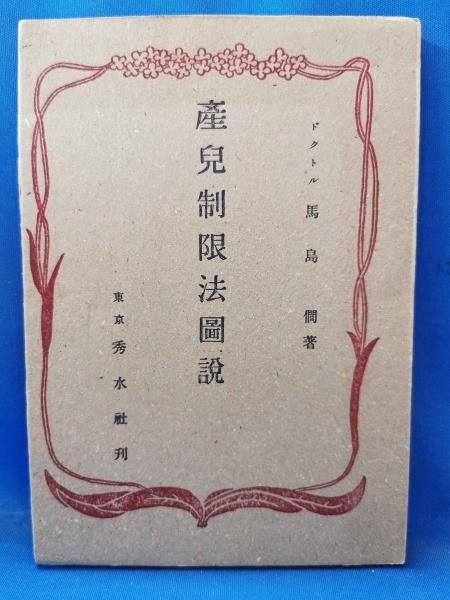 ドクトル 馬島 僩著
產兒制限法圖說
東京 秀水社刊